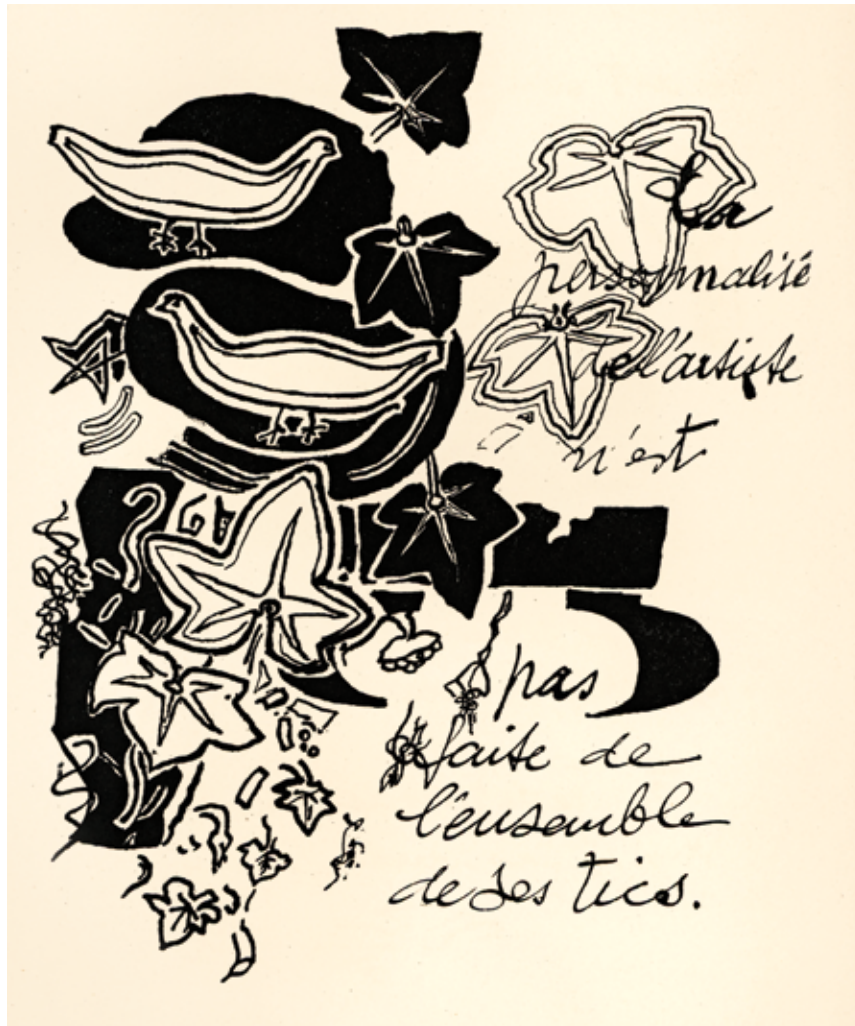 La
personnalité
de l'artiste
n'est
pas
faite de
l'ensemble
de ses tics.